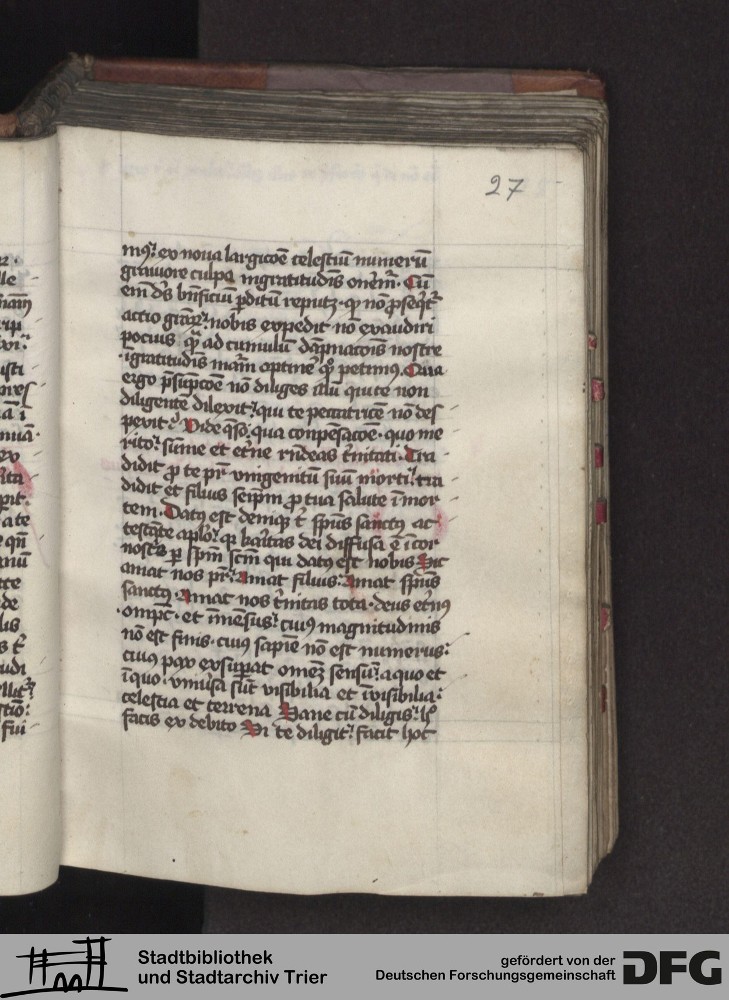 27
mꝰ: ex noua largicōe celestiū numerū
grauiore culpa ingratitudīs onem̄. Cū
em̄ d̄s bn̄ficiū ꝑditū reputꝫ· qꝛ nō ꝓseqt̄
actio gr̄aꝝ: nobis expedit nō exaudiri
pocius qͣ ad cumulū dāpnacoīs nostre
·igratitudīs mām optinē qͦ petimꝰ. Qua
ergo p̄supcōe nō diliges illū qui te non
diligentē dilexit: qui te peccatricē nō des
pexit: Vide qͣso: qua conpēsacōe· quo me
rito: sūme et et̄ne rn̄deas t̄nitati. Tra
didit ꝓ te pr̄ vnigenitū suū morti: tra
didit et filius seip̄m ꝓ tua salute ī mor
tem. Datꝰ est demiqꝫ t̄ sp̄us sanctꝰ at
testāte aplōꝝ qꝛ caritas dei diffusa ē ī cor
nostͥs ꝑ sp̄m sc̄m qui datꝰ est nobis Sic
amat nos pr̄: Amat filius: Amat sp̄us
sanctꝰ. Amat nos t̄nitas tota· deus et̄nꝰ
·omp̄c̄· et īmēsus: cuiꝰ magnitudinis
nō est finis· cuiꝰ sapīe nō est numerus:
cuiꝰ pax exsuꝑat omēꝫ sensū: a quo et
ī quo· vniūsa sūt visibilia et īvisibilia:
celestia et terrena Hanc cū diligis: h̄
facis ex debito Vi te diligit: facit hoc
Stadtbibliothek
und Stadtarchiv Trier
gefördert von der
Deutschen Forschungsgemeinschaft
DFG